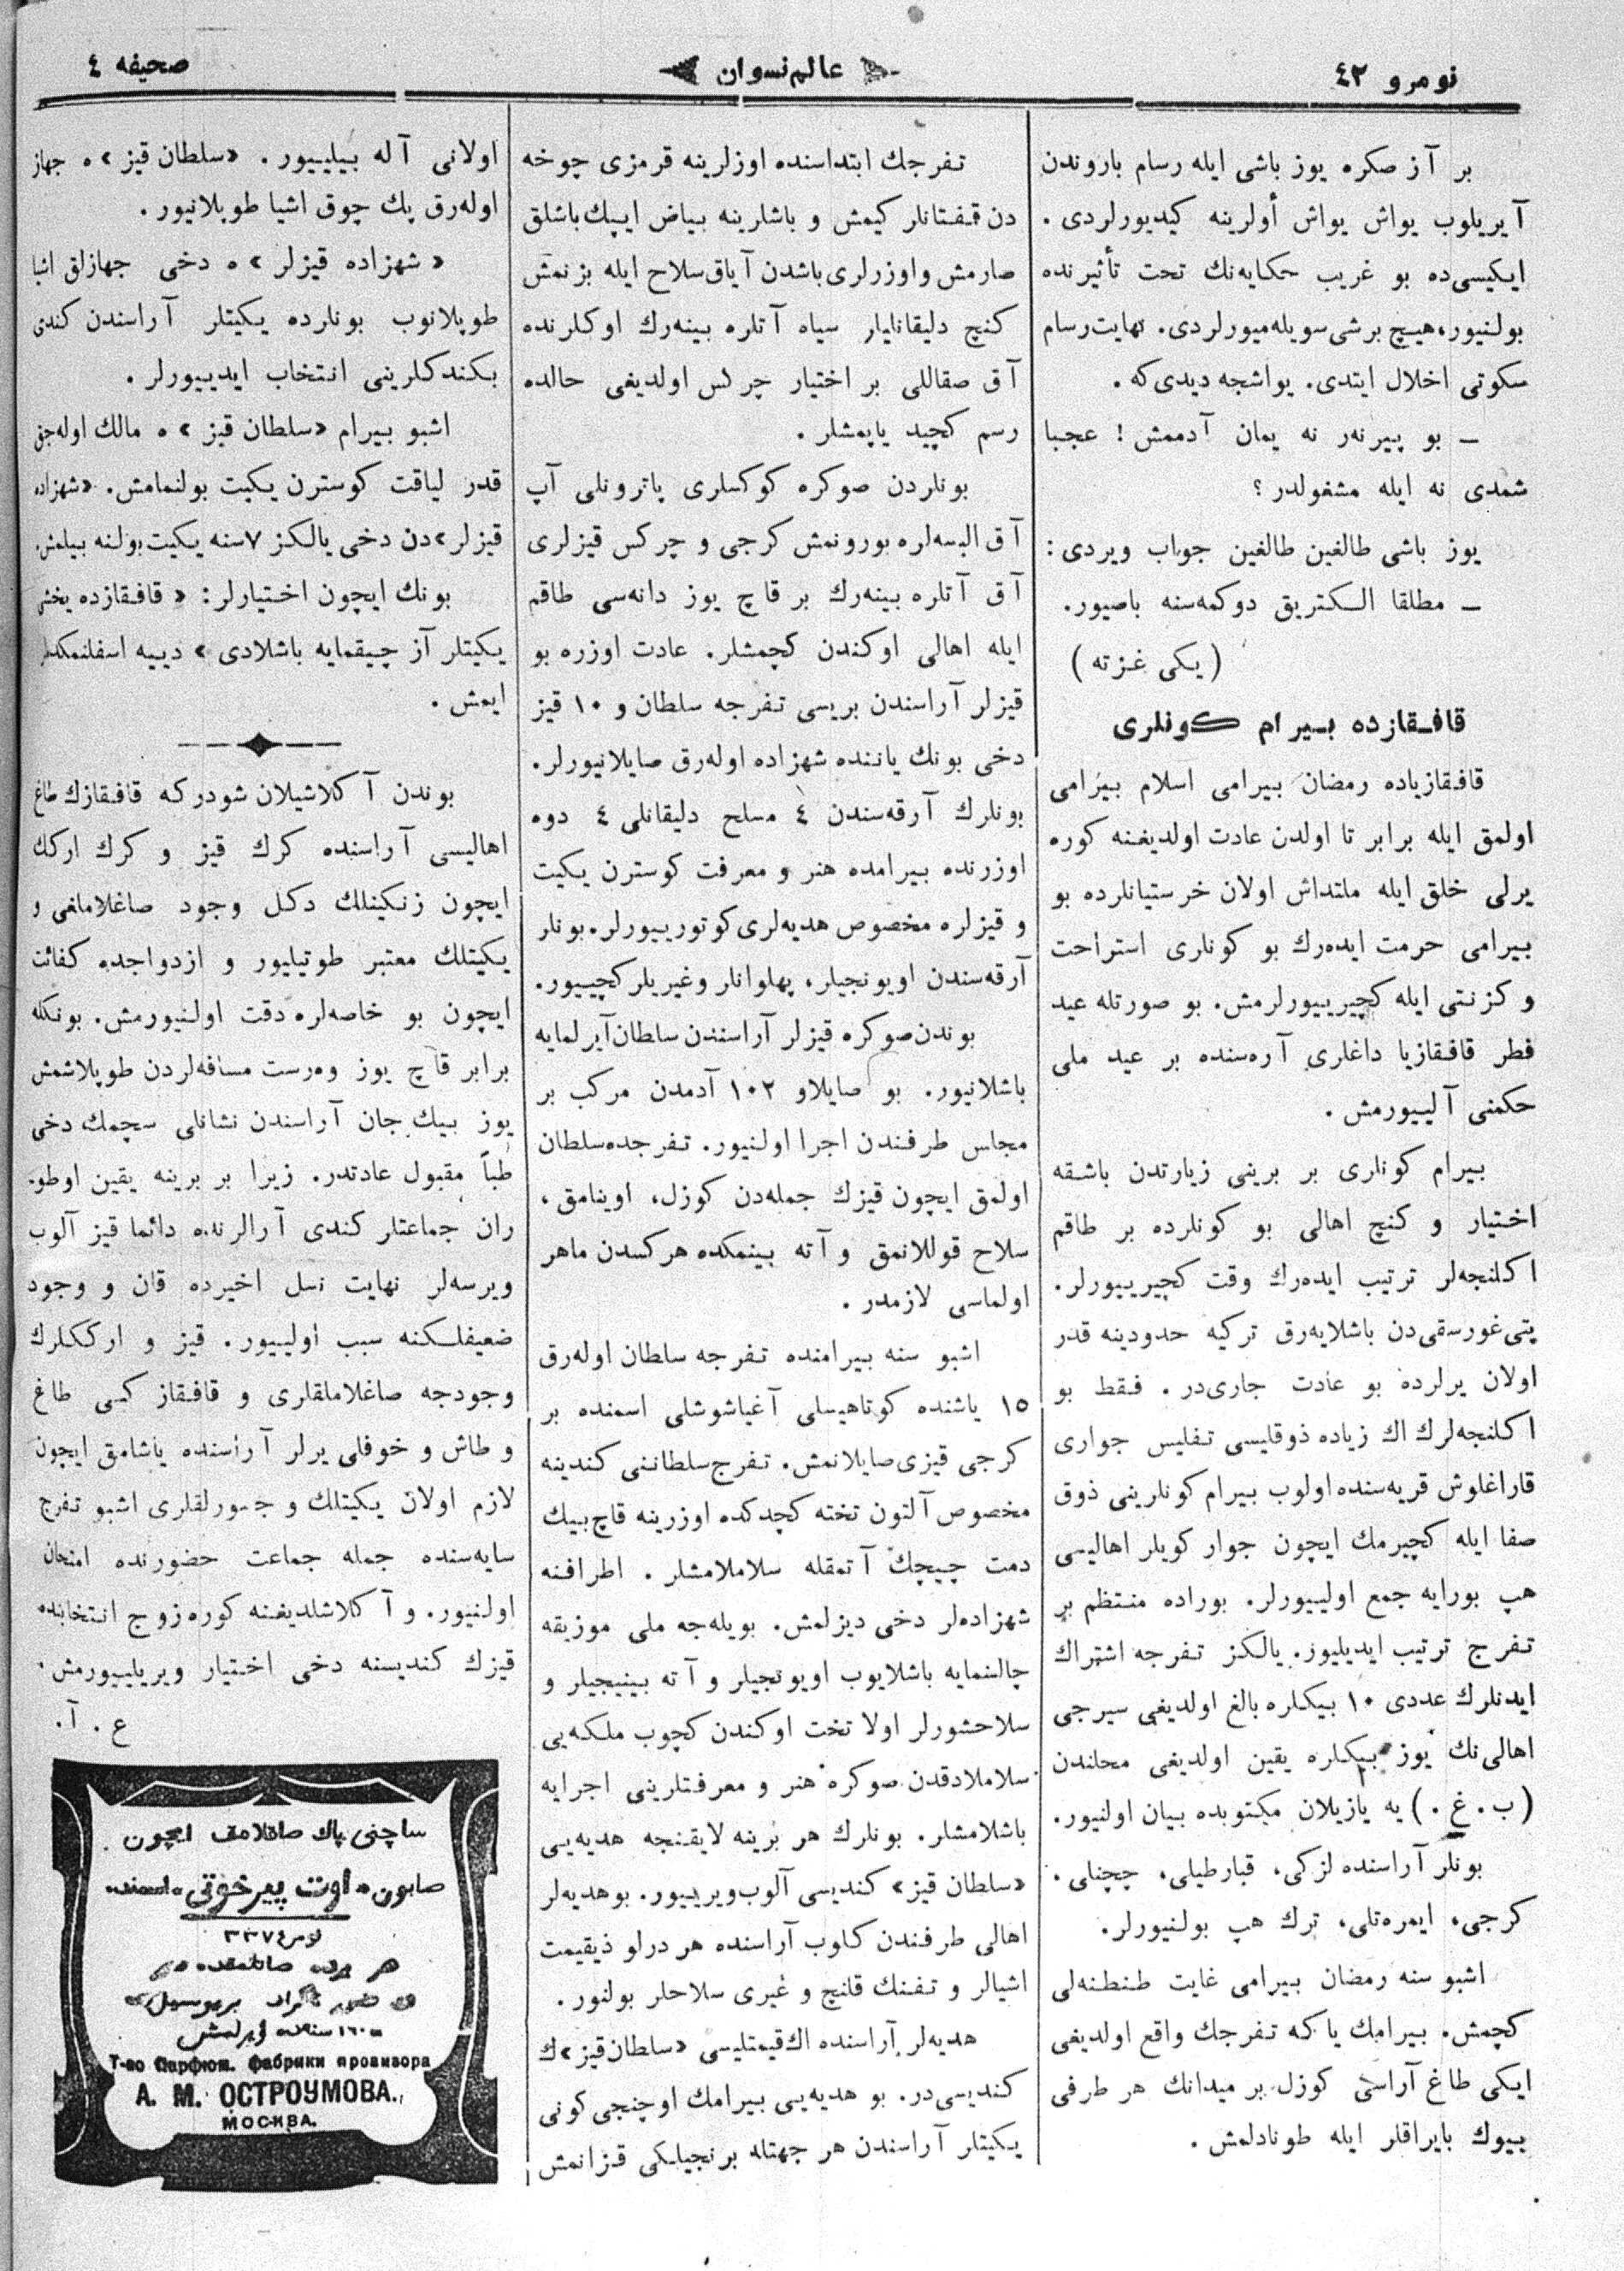 نومرو ٤٢
عالم نسوان
صحيفه ٤
بر آز صكره يوز باشى ايله رسام باروندن
آيريلوب يواش يواش أولرينه كيديورلردى.
ايكيسى‌ده بو غريب حكايه‌نك تحت تأثيرنده
بولنيور، هيچ برشى سويله‌ميورلردى. نهايت رسام
سكوتى اخلال ايتدى. يواشجه ديدى كه.
— بو پيرنه‌ر نه يمان آدممش! عجبا
شمدى نه ايله مشغولدر؟
يوز باشى طالغين طالغين جواب ويردى:
— مطلقا الكتريق دوكمه‌سنه باصيور.
(يكى غزته)
قافقازده بيرام كونلرى
قافقازياده رمضان بيرامى اسلام بيرامى
اولمق ايله برابر تا اولدن عادت اولديغنه كوره
يرلى خلق ايله ملتداش اولان خرستيانلرده بو
بيرامى حرمت ايده‌رك بو كونلرى استراحت
و كزنتى ايله كچيرييورلرمش. بو صورتله عيد
فطر قافقازيا داغلرى آره‌سنده بر عيد ملى
حكمنى آلييورمش.
بيرام كونلرى بر برينى زيارتدن باشقه
اختيار و كنج اهالى بو كونلرده بر طاقم
اكلنجه‌لر ترتيب ايده‌رك وقت كچيرييورلر.
پتى‌غورسقى‌دن باشلايه‌رق تركيه حدودينه قدر
اولان يرلرده بو عادت جارى‌در. فقط بو
اكلنجه‌لرك اك زياده ذوقليسى تفليس جوارى
قاراغلوش قريه‌سنده اولوب بيرام كونلرينى ذوق
صفا ايله كچيرمك ايچون جوار كويلر اهاليسى
هپ بورايه جمع اولييورلر. بوراده منتظم بر
تفرج ترتيب ايديليور. يالكز تفرجه اشتراك
ايدنلرك عددى ١٠ بيكلره بالغ اولديغى سيرجى
اهالى‌نك يوز بيكلره يقين اولديغى محلندن
(ب. غ.) يه يازيلان مكتوبده بيان اولنيور.
بونلر آراسنده لزكى، قبارطيلى، چچنلى،
كرجى، ايمره‌تلى، ترك هپ بولنيورلر.
اشبو سنه رمضان بيرامى غايت طنطنه‌لى
كچمش. بيرامك ياكه تفرجك واقع اولديغى
ايكى طاغ آراسى كوزل بر ميدانك هر طرفى
بيوك بايراقلر ايله طونادلمش.
تفرجك ابتداسنده اوزلرينه قرمزى چوخه
دن قفتانلر كيمش و باشلرينه بياض ايپك باشلق
صارمش و اوزرلرى باشدن آياق سلاح ايله بزنمش
كنج دليقانليلر سياه آتلره بينه‌رك اوكلرنده
آق صقاللى بر اختيار چركس اولديغى حالده
رسم كچيد ياپمشلر.
بونلردن صوكره كوكسلرى پاترونلى آپ
آق البسه‌لره بورونمش كرجى و چركس قيزلرى
آق آتلره بينه‌رك بر قاچ يوز دانه‌سى طاقم
ايله اهالى اوكندن كچمشلر. عادت اوزره بو
قيزلر آراسندن بريسى تفرجه سلطان و ١٠ قيز
دخى بونك ياننده شهزاده اوله‌رق صايلانيورلر.
بونلرك آرقه‌سندن ٤ مسلح دليقانلى ٤ دوه
اوزرنده بيرامده هنر و معرفت كوسترن يكيت
و قيزلره مخصوص هديه‌لرى كوتورييورلر. بونلر
آرقه‌سندن اويونجيلر، پهلوانلر و غيريلر كچييور.
بوندن صوكره قيزلر آراسندن سلطان آيرلمايه
باشلانيور. بو صايلاو ١٠٢ آدمدن مركب بر
مجلس طرفندن اجرا اولنيور. تفرجده سلطان
اولمق ايچون قيزك جمله‌دن كوزل، اوينامق،
سلاح قوللانمق و آته بينمكده هركسدن ماهر
اولماسى لازمدر.
اشبو سنه بيرامنده تفرجه سلطان اوله‌رق
١٥ ياشنده كوتاهيسلى آغياشوشلى اسمنده بر
كرجى قيزى صايلانمش. تفرج سلطاننى كندينه
مخصوص آلتون تخته كچدكده اوزرينه قاچ بيك
دمت چيچك آتمقله سلاملامشلر. اطرافنه
شهزاده‌لر دخى ديزلمش. بويله‌جه ملى موزيقه
چالنمايه باشلايوب اويونجيلر و آته بينيجيلر و
سلاحشورلر اولا تخت اوكندن كچوب ملكه‌يى
سلاملادقدن صوكره هنر و معرفتلرينى اجرايه
باشلامشلر. بونلرك هر برينه لايقنجه هديه‌يى
«سلطان قيز» كنديسى آلوب ويرييور. بو هديه‌لر
اهالى طرفندن كلوب آراسنده هر درلو ذيقيمت
اشيالر و تفنك قلنج و غيرى سلاحلر بولنور.
هديه‌لر آراسنده اك قيمتليسى «سلطان قيز»ك
كنديسى‌در. بو هديه‌يى بيرامك اوچنجى كونى
يكيتلر آراسندن هر جهتله برنجيلكى قزانمش
اولانى آله بيلييور. «سلطان قيز»ه جهاز
اوله‌رق پك چوق اشيا طوپلانيور.
«شهزاده قيزلر»ه دخى جهازلق اشيا
طوپلانوب بونلرده يكيتلر آراسندن كندى
بكندكلرينى انتخاب ايدييورلر.
اشبو بيرام «سلطان قيز»ه مالك اوله‌جق
قدر لياقت كوسترن يكيت بولنمامش. «شهزاده
قيزلر»دن دخى يالكز ٧سنه يكيت بولنه بيلمش.
بونك ايچون اختيارلر: «قافقازده يخشى
يكيتلر آز چيقمايه باشلادى» دييه اسفلنمكده‌لر
ايمش.
بوندن آكلاشيلان شودركه قافقازك طاغ
اهاليسى آراسنده كرك قيز و كرك اركك
ايچون زنكينلك دكل وجود صاغلاملغى و
يكيتلك معتبر طوتيليور و ازدواجده كفائت
ايچون بو خاصه‌لره دقت اولنيورمش. بونكله
برابر قاچ يوز وه‌رست مسافه‌لردن طوپلاشمش
يوز بيك جان آراسندن نشانلى سچمك دخى
طباً مقبول عادتدر. زيرا بر برينه يقين اوطو-
ران جماعتلر كندى آرالرنده دائما قيز آلوب
ويرسه‌لر نهايت نسل اخيرده قان و وجود
ضعيفلكنه سبب اولييور. قيز و ارككلرك
وجودجه صاغلاملقلرى و قافقاز كبى طاغ
و طاش و خوفلى يرلر آراسنده ياشامق ايچون
لازم اولان يكيتلك و جسورلقلرى اشبو تفرج
سايه‌سنده جمله جماعت حضورنده امتحان
اولنيور. و آكلاشلديغنه كوره زوج انتخابنده
قيزك كنديسنه دخى اختيار ويريلييورمش.
ع. آ.
ساچنى پاك صاقلامق ايچون
صابون
اسمنده
٣٣٧٤
هر يرده صاتلمقده در
Т-во Парфюм. фабрики провизора
А. М. ОСТРОУМОВА.
МОСКВА.